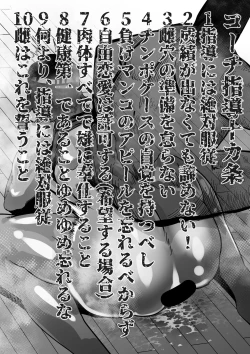 コーチ指導十カ条
1指導には絶対服従
2成績が出なくても諦めない!
3雌穴の準備を怠らない
4チンポケースの自覚を持つべし
5負けマンコのアピールを忘れるべからず
6自由恋愛は許可する(希望する場合)
7肉体すべてで雄に奉仕すること
8健康第一であることゆめゆめ忘れるな
9何より、指導には絶対服従
10雌はこれを誓うこと